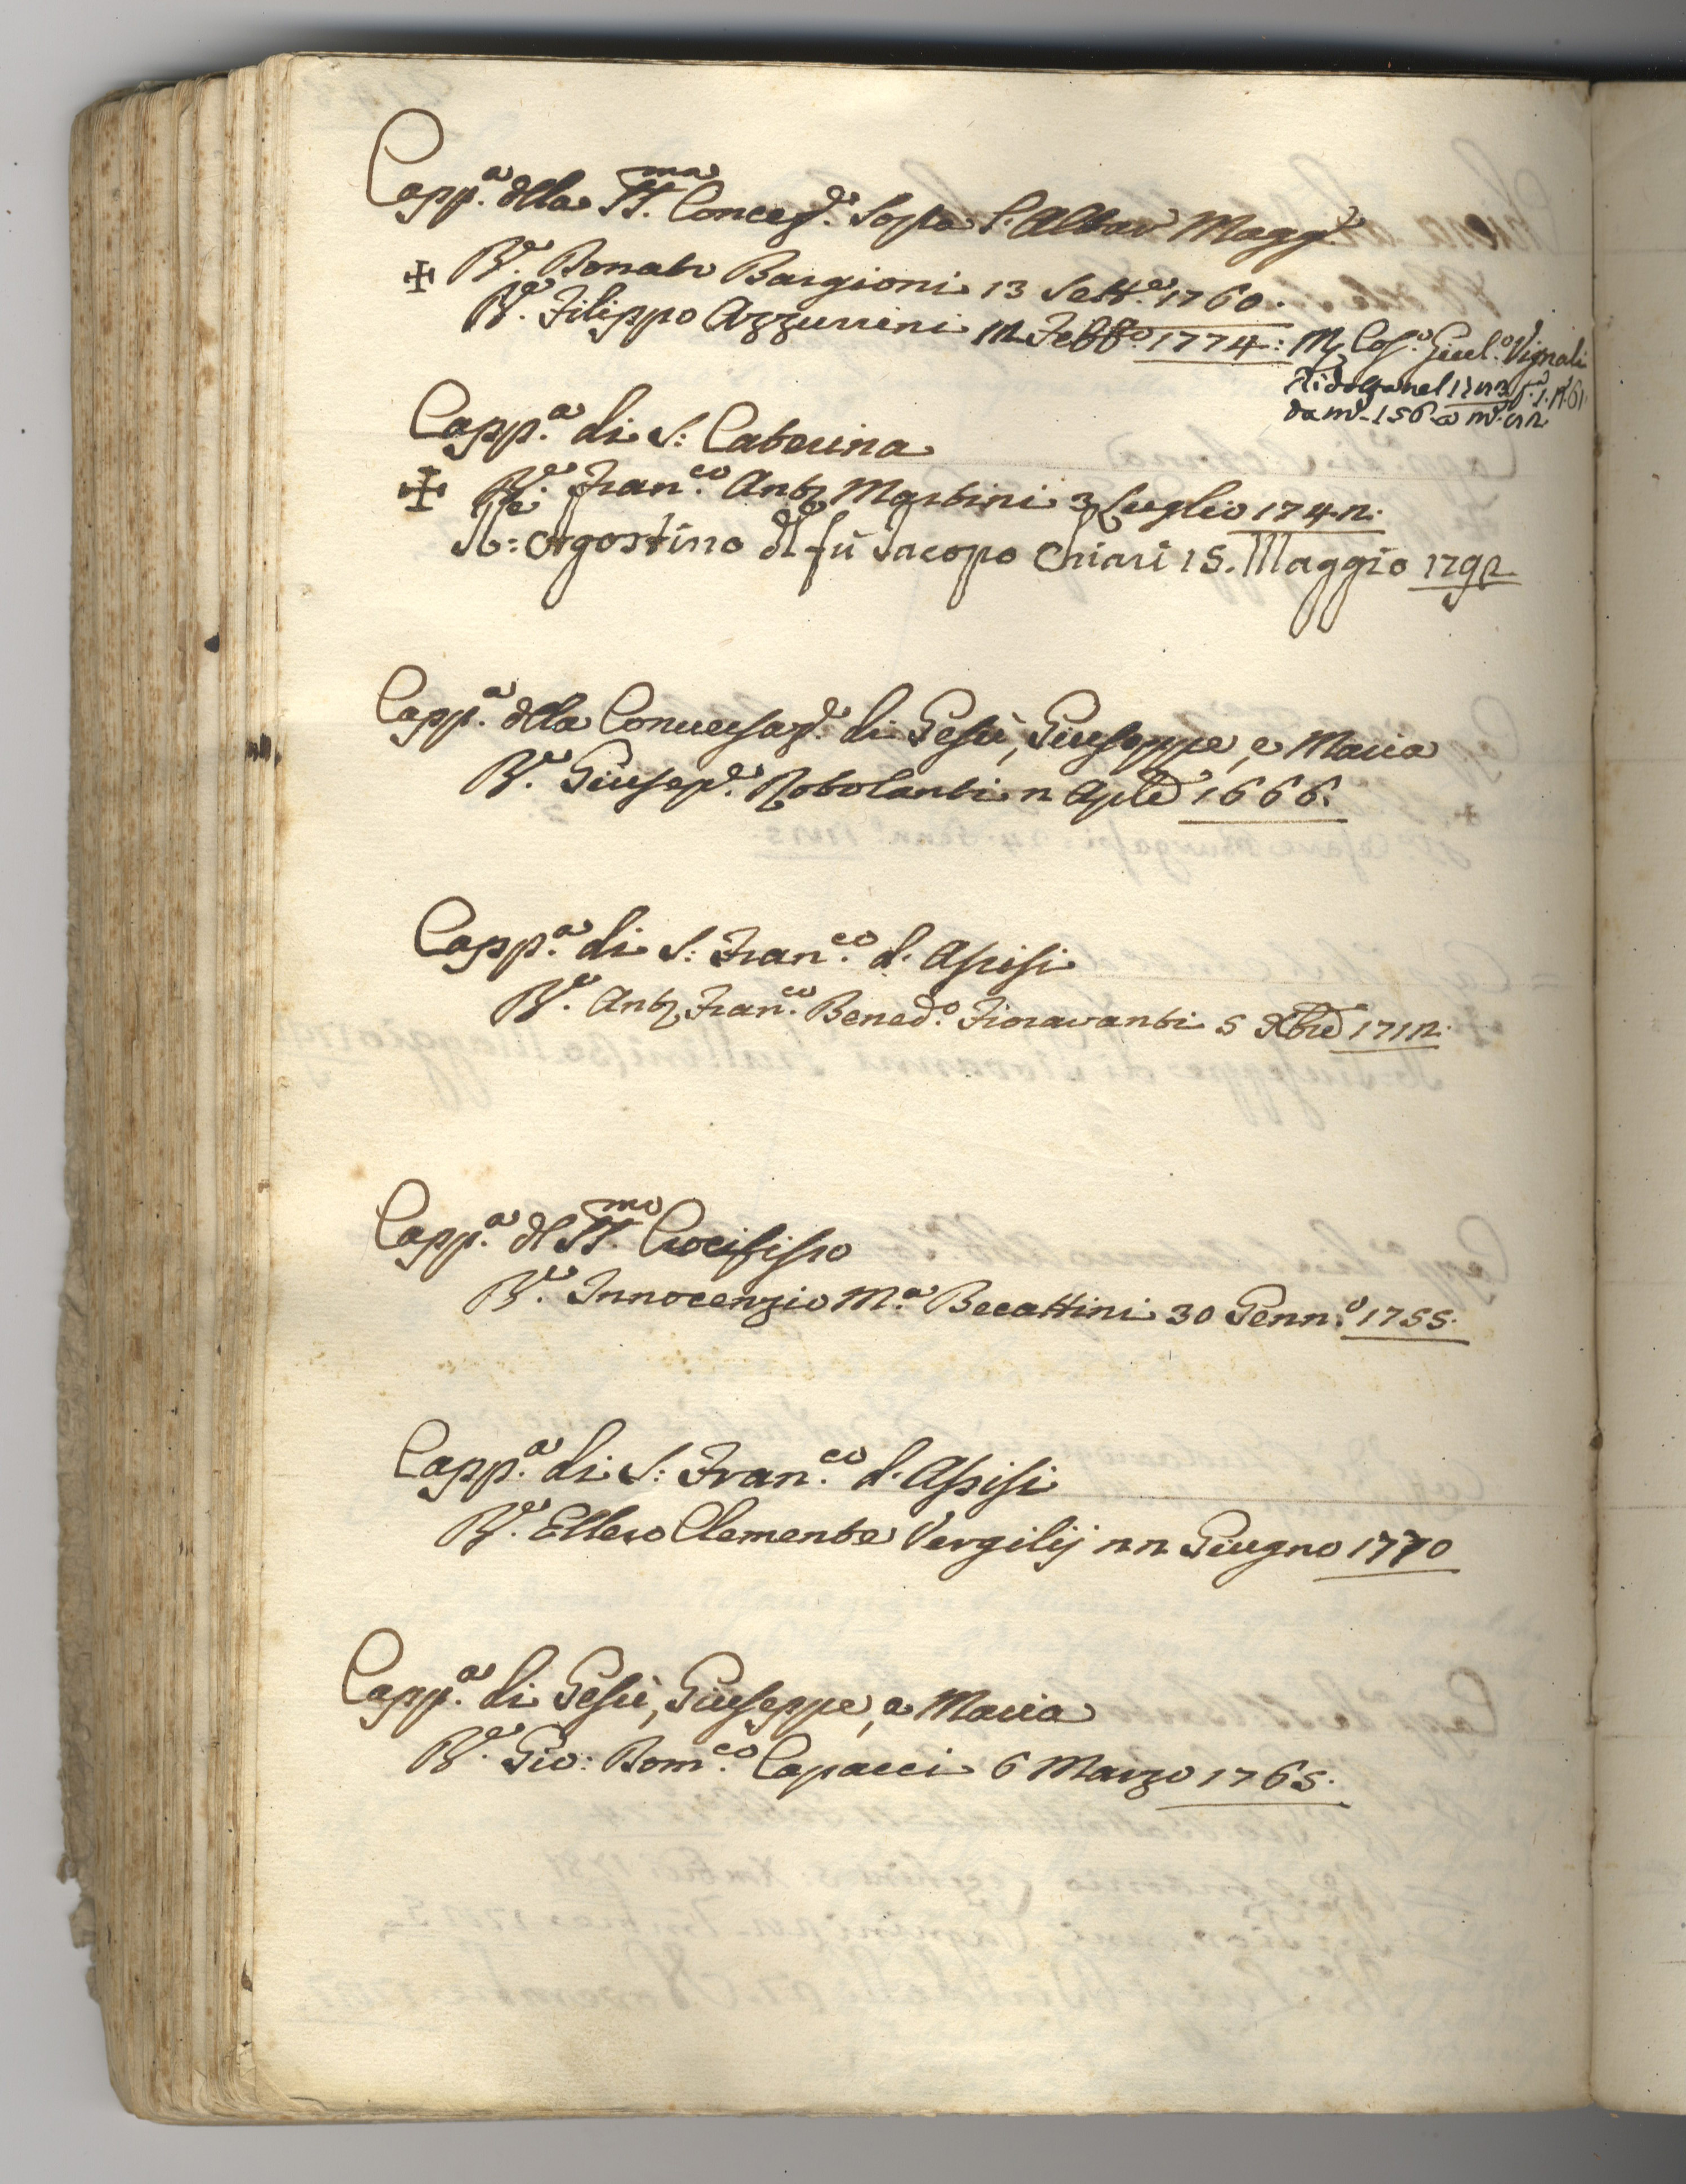 Capp.ª dlla SS.ma Concez.e sop.a l'Altar Magg.e
✠ R.e Donato Bargioni 13 Sett.e 1760.
R.e Filippo Azzurrini 12 Febb.o 1774: Giul.o Vignali
Ridolfa nel
da 156 a
Capp.ª di S: Caterina
✠ R.e Fran.co Ant.o Martini 3 Luglio 1742.
R.e: Agostino dl fù Jacopo Chiari 15. Maggio 1792
Capp.ª dlla Conversaz.e di Gesù, Giuseppe, e Maria
R.e Giusep.e Robolanti 2 Ap.le 1666.
Capp.ª di S: Fran.co d'Assisi
R.e Ant.o Fran.co Bened.o Fioravanti 5 Xbre 1712.
Capp.ª dl SS.mo Crocifisso
R.e Innocenzio M.ª Becattini 30 Genn.o 1755.
Capp.ª di S: Fran.co d'Assisi
R.e Ellero Clemente Vergilij 22 Giugno 1770
Capp.ª di Gesù, Giuseppe, e Maria
R.e Gio: Dom.co Capacci 6 Marzo 1765.